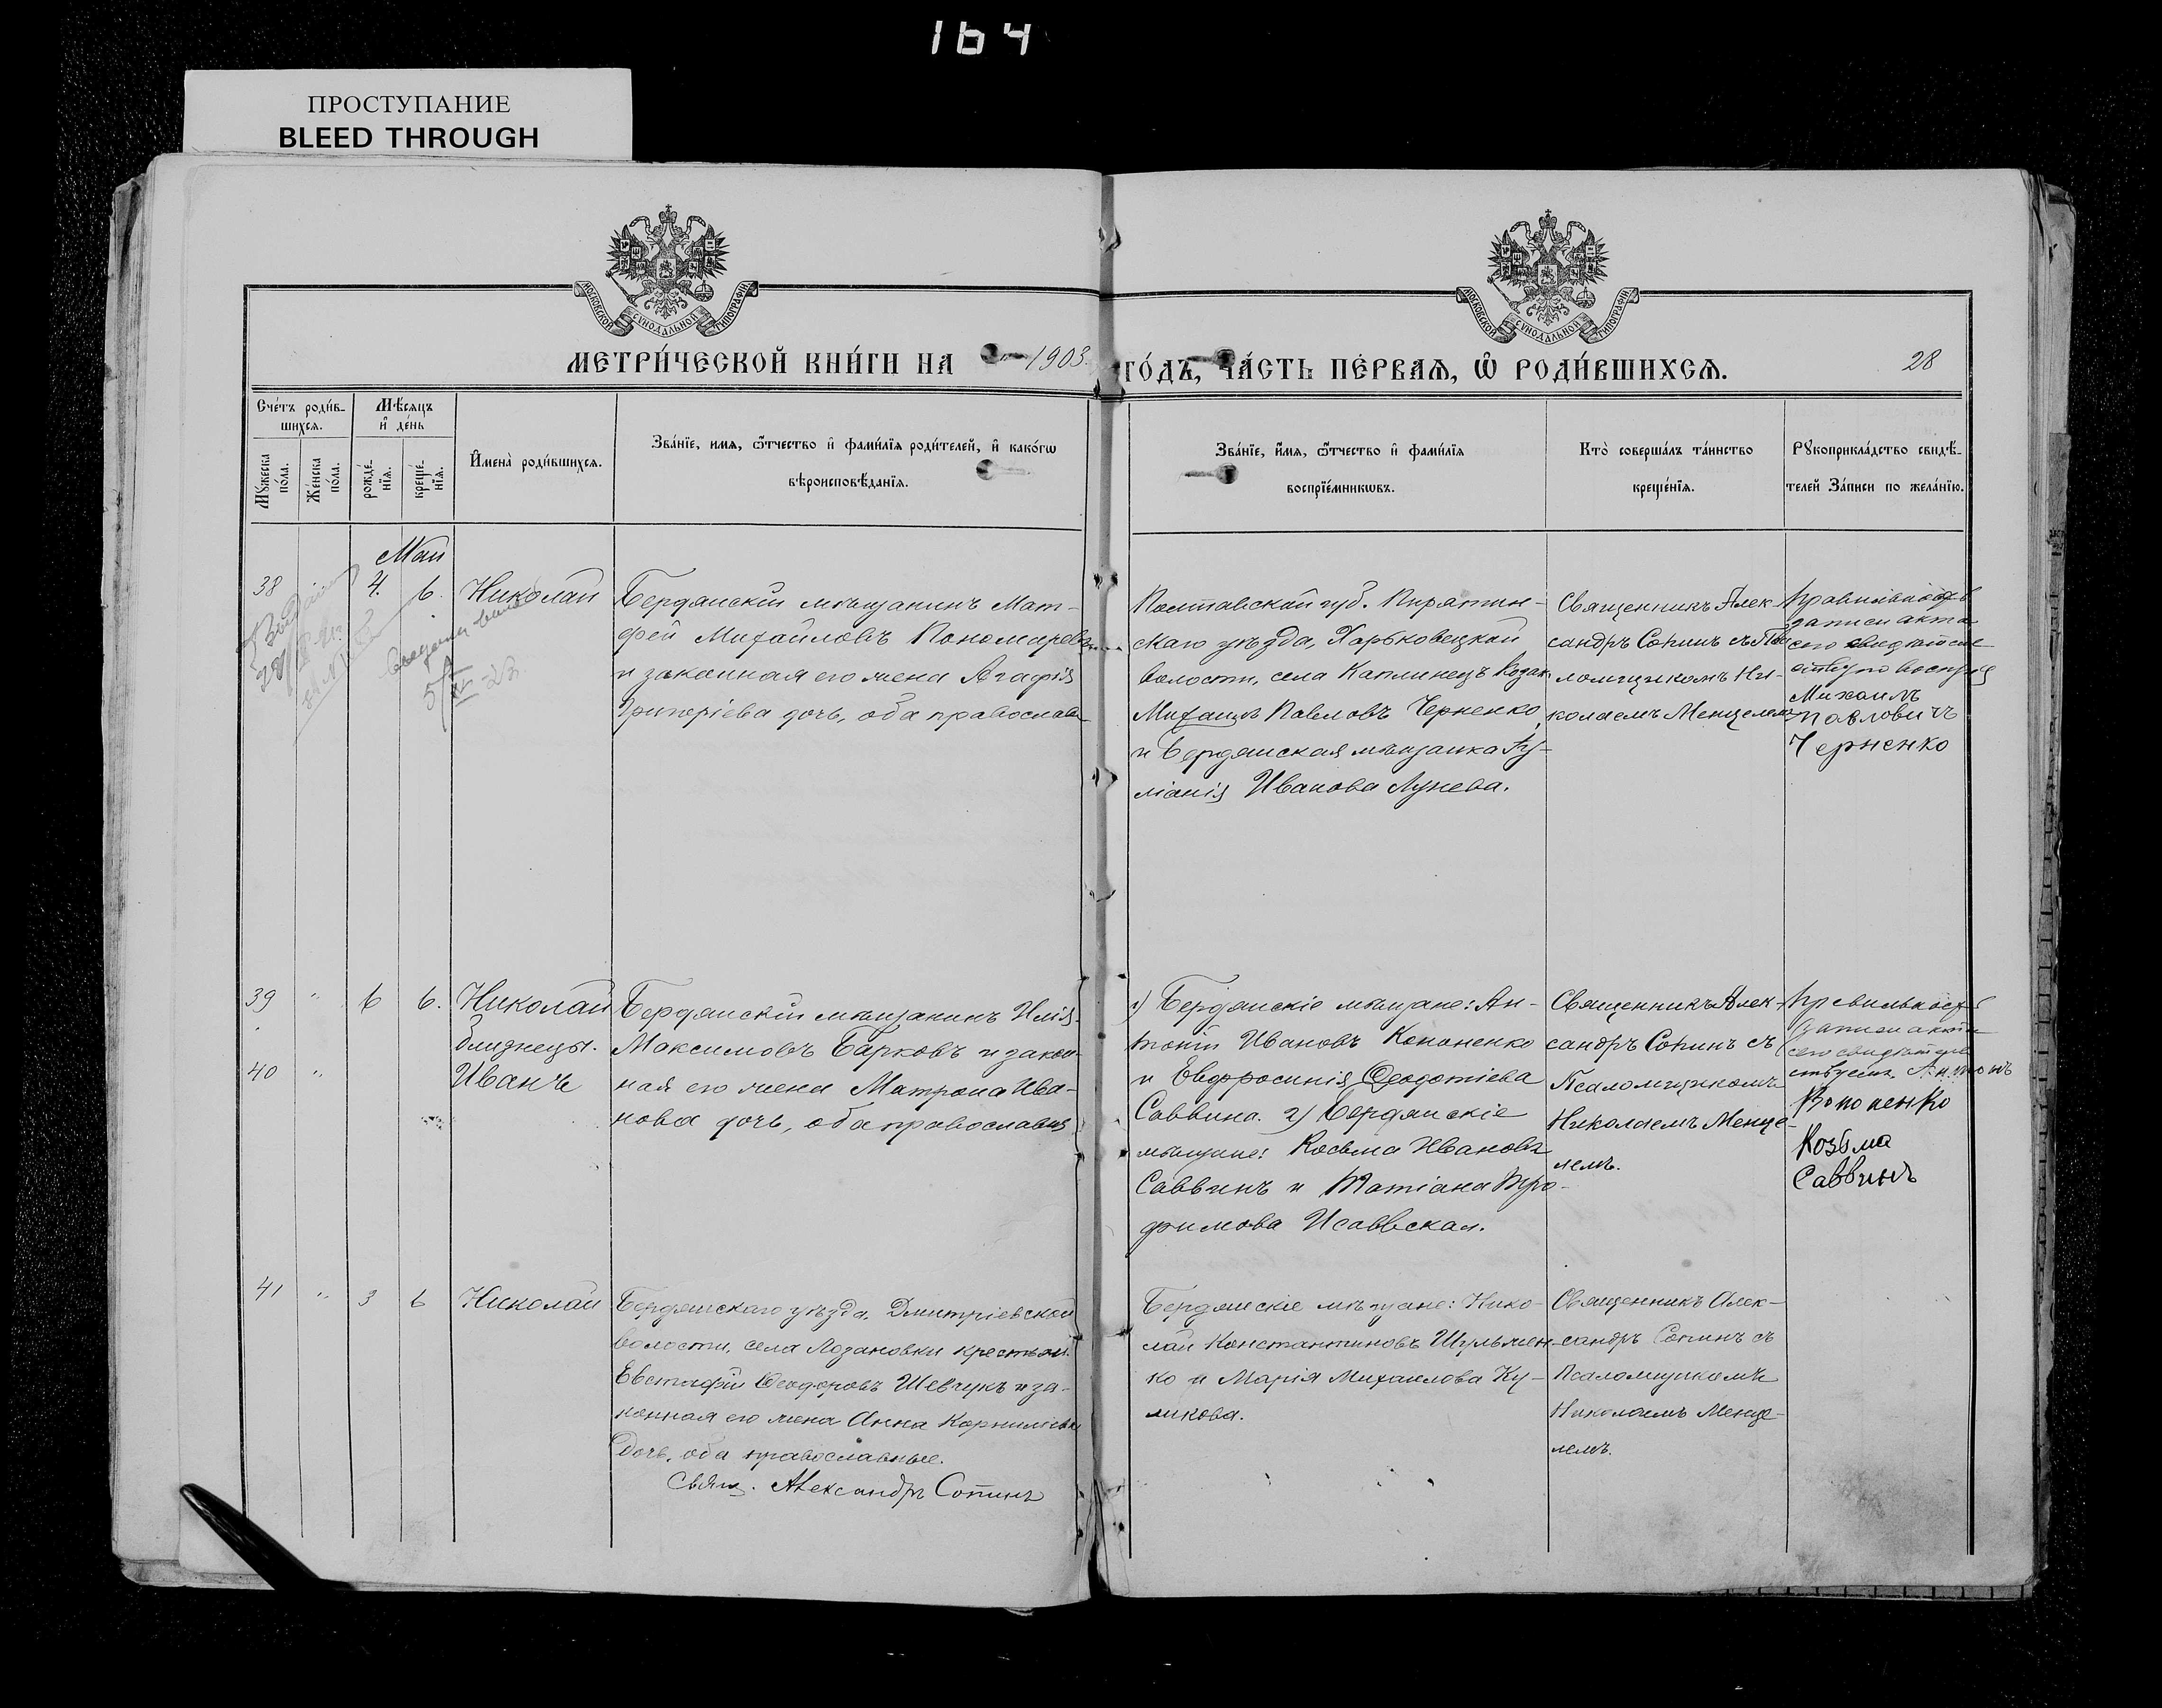 164
ПРОСТУПАНИЕ
BLEED THROUGH
МОСКОВСКОЙ СУНОДАЛЬНОЙ ТИПОГРАФІИ
МОСКОВСКОЙ СУНОДАЛЬНОЙ ТИПОГРАФІИ
МЕТРИ́ЧЕСКОЙ КНИ́ГИ НА 1903.
ГО́ДЪ, ЧА́СТЬ ПЕ́РВАѦ, Ѽ РОДИ́ВШИХСѦ.
28
Сче́тъ роди́в-
шихсѧ.
Мѣ́сѧцъ
и҆ де́нь
Мꙋ́жеска
по́ла.
Же́нска
по́ла.
рожде́-
нїѧ.
креще́-
нїѧ.
И҆мена̀ роди́вшихсѧ.
Зва́нїе, имѧ, ѻ҆́тчество и҆ фами́лїѧ роди́телей, и҆ како́гѡ
вѣроисповѣ́данїѧ.
Зва́нїе, и҆́мѧ, ѻ҆́тчество и҆ фами́лїѧ
воспрїе́мникѡвъ.
Кто̀ соверша́лъ та́инство
креще́нїѧ.
Рꙋкоприкла́дство свидѣ́-
телей За́писи по жела́нїю.
Май
38
4.
6.
Николай
Бердянскій мѣщанинъ Мат-
фей Михайловъ Пономаревъ
и законная его жена Агафія
Григоріева дочь, оба православн
Полтавской губ. Пирятин-
скаго уѣзда, Харьковецкой
волости, села Каплинецъ козак.
Михаилъ Павловъ Черненко,
и Бердянская мѣщанка Іу-
ліанія Иванова Лунева.
Священникъ Алек-
сандръ Сопинъ съ Пса
ломщикомъ Ни-
колаемъ Менцелемъ
Правильность
записи акта
сего свидѣтель
Михаилъ
Павловичъ
Черненко
39
"
6
6.
Николай
близнецы.
40
"
Иванъ
Бердянскій мѣщанинъ Илія
Максимовъ Барковъ и закон-
ная его жена Матрона Ива-
нова дочь, оба православн
1) Бердянскіе мѣщане: Ан-
тоній Ивановъ Кононенко
и Евфросинія Ѳеодотіева
Саввина. 2) Бердянскіе
мѣщане: Косьма Ивановъ
Саввинъ и Татіана Тро-
фимова Исаввская.
Священникъ Алек-
сандръ Сопинъ съ
Псаломщикомъ
Николаемъ Менце-
лемъ.
Правильность
записи акта
сего свидѣтель
ствуемъ Антонъ
Кононенко
Козьма
Саввинъ
41
"
3
6
Николай
Бердянскаго уѣзда, Дмитріевской
волости, села Лозановки крестьян.
Евстафій Ѳеодоровъ Шевчукъ и за-
конная его жена Анна Корниліева
дочь, оба православные.
Свящ. Александръ Сопинъ
Бердянскіе мѣщане: Нико-
лай Константиновъ Шульжен-
ко и Марія Михаилова Ку-
ликова.
Священникъ Алек-
сандръ Сопинъ съ
Псаломщикомъ
Николаемъ Менце-
лемъ.